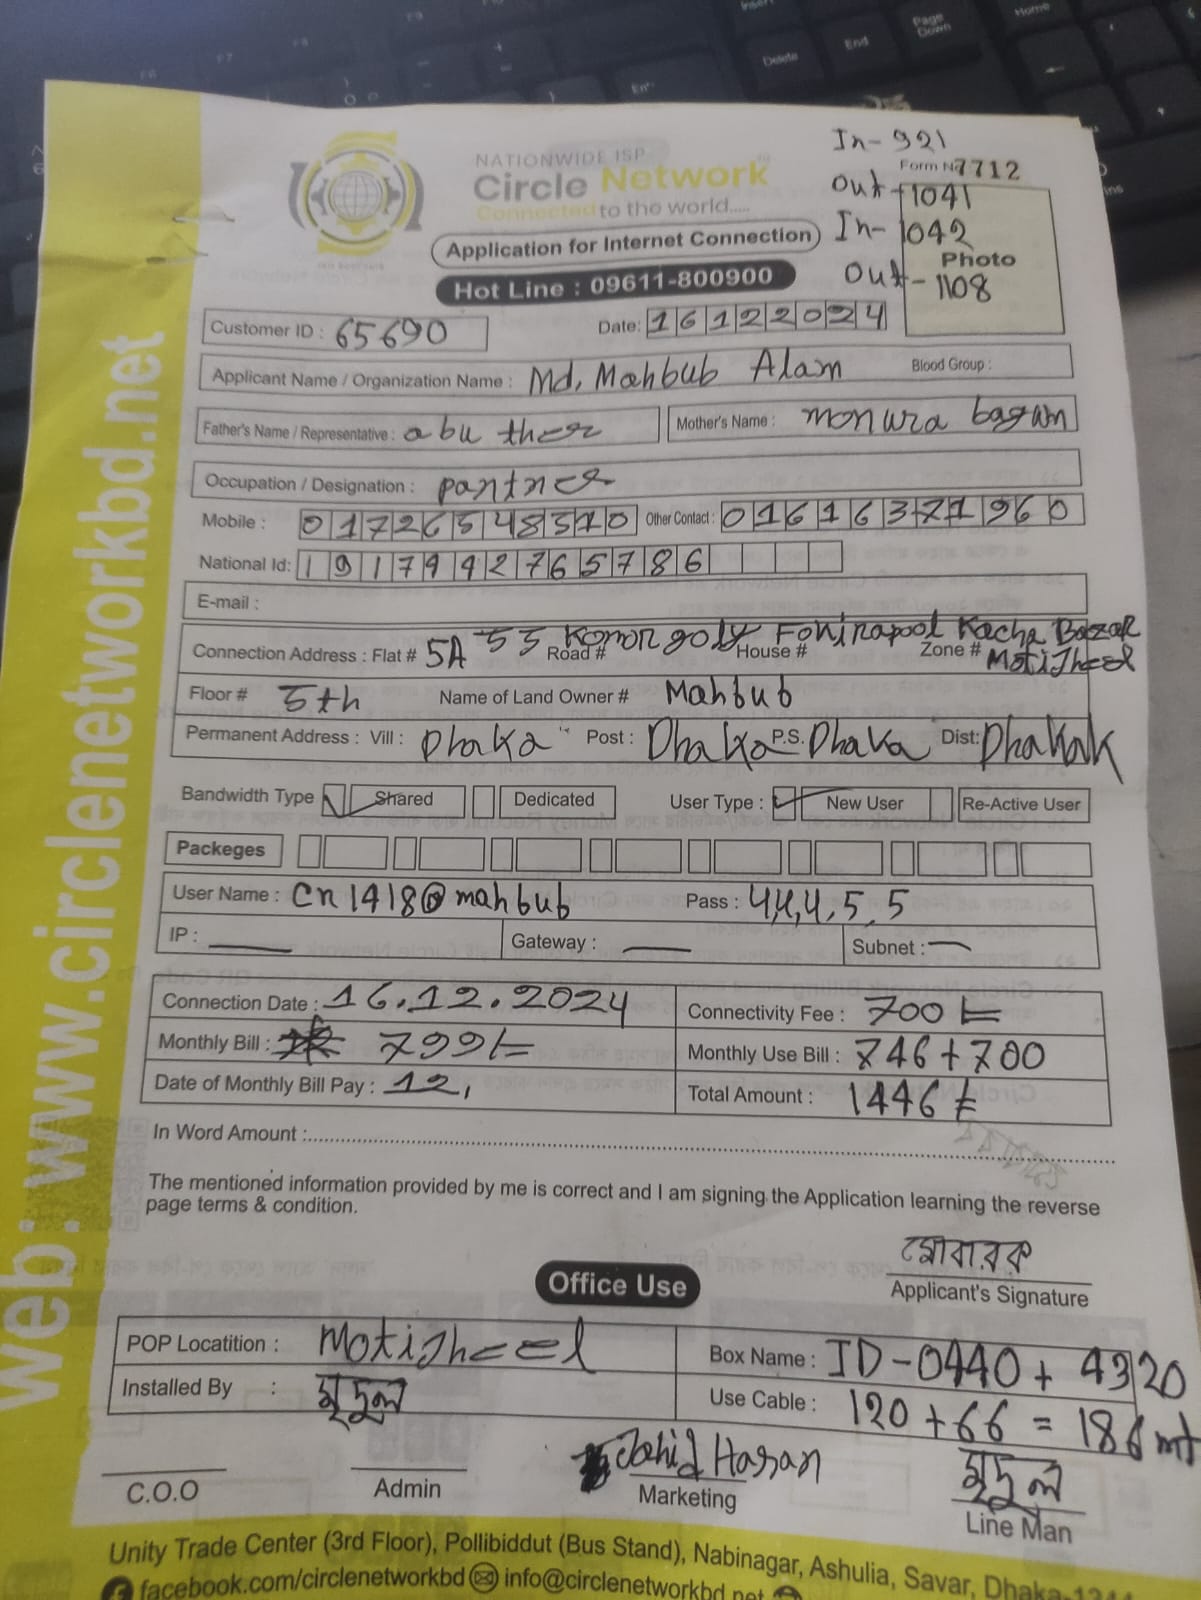 In- 921
Form No 7712
NATIONWIDE ISP
Circle Network
Connected to the world.....
Out - 1041
In- 1042
Application for Internet Connection
Photo
Out - 1108
Hot Line : 09611-800900
Customer ID : 65690 Date: 16122024
Applicant Name / Organization Name : Md. Mahbub Alam Blood Group :
Father's Name / Representative : abu ther Mother's Name : monura bagum
Occupation / Designation : partner
Mobile : Other Contact :
National Id:
E-mail :
Connection Address : Flat # 5A 53 Komor goly Fokirapool Kacha Bazar
Road # House # Zone # Motijheel
Floor # 5th Name of Land Owner # Mahbub
Permanent Address : Vill : Dhaka Post : Dhaka P.S. Dhaka Dist:
Bandwidth Type Shared Dedicated User Type : New User Re-Active User
Packeges
User Name : cn1418@mahbub Pass : 4,4,4,5,5
IP : — Gateway : — Subnet : —
Connection Date : 16.12.2024 Connectivity Fee : 700/=
Monthly Bill : 799/= Monthly Use Bill : 746+700
Date of Monthly Bill Pay : 12, Total Amount : 1446/=
In Word Amount :
The mentioned information provided by me is correct and I am signing the Application learning the reverse
page terms & condition.
মোবারক
Applicant's Signature
Office Use
POP Locatition : Motijheel Box Name : ID-0440+ 4320
Installed By : মৃদুল Use Cable : 120+66 = 186 mt
Jahid Hasan মৃদুল
C.O.O Admin Marketing Line Man
Unity Trade Center (3rd Floor), Pollibiddut (Bus Stand), Nabinagar, Ashulia, Savar, Dhaka-1344
facebook.com/circlenetworkbd info@circlenetworkbd.net
web: www.circlenetworkbd.net